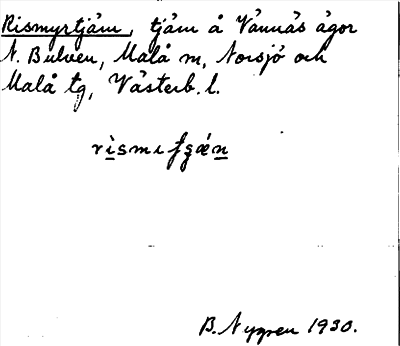 Rismyrtjärn, tjärn å Vännäs ägor
N. Bulven, Malå sn, Norsjö och
Malå tg, Västerb. l.
B. Nygren 1930.